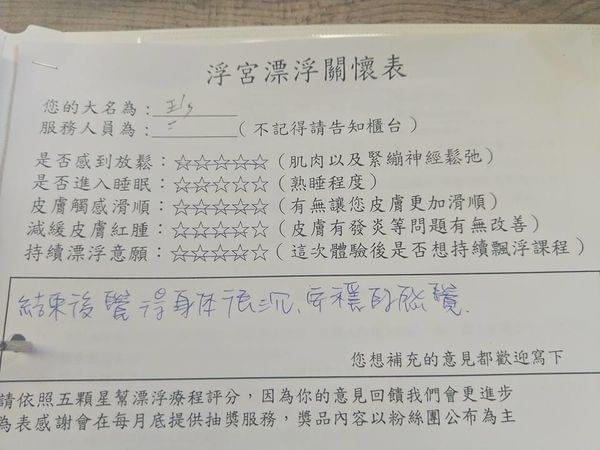 浮宮漂浮關懷表
您的大名為：
服務人員為：（不記得請告知櫃台）
是否感到放鬆：☆☆☆☆☆（肌肉以及緊繃神經鬆弛）
是否進入睡眠：☆☆☆☆☆（熟睡程度）
皮膚觸感滑順：☆☆☆☆☆（有無讓您皮膚更加滑順）
減緩皮膚紅腫：☆☆☆☆☆（皮膚有發炎等問題有無改善）
持續漂浮意願：☆☆☆☆☆（這次體驗後是否想持續飄浮課程）
結束後覺得身体很沉、安穩的感覺.
您想補充的意見都歡迎寫下
請依照五顆星幫漂浮療程評分，因為你的意見回饋我們會更進步
為表感謝會在每月底提供抽獎服務，獎品內容以粉絲團公布為主